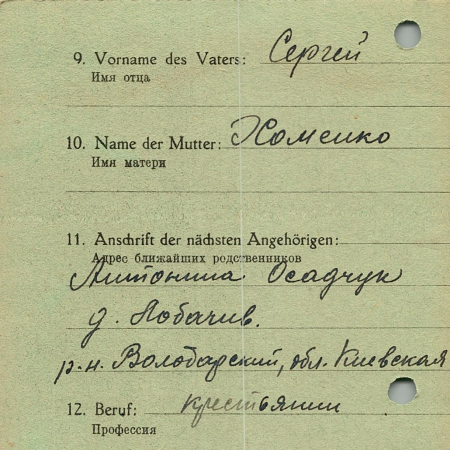 9. Vorname des Vaters: Сергей
Имя отца
10. Name der Mutter: Хоменко
Имя матери
11. Anschrift der nächsten Angehörigen:
Адрес ближайших родственников
Антонина Осадчук
д. Лобачив.
р-н. Володарский, обл. Киевская
12. Beruf: крестьянин
Профессия